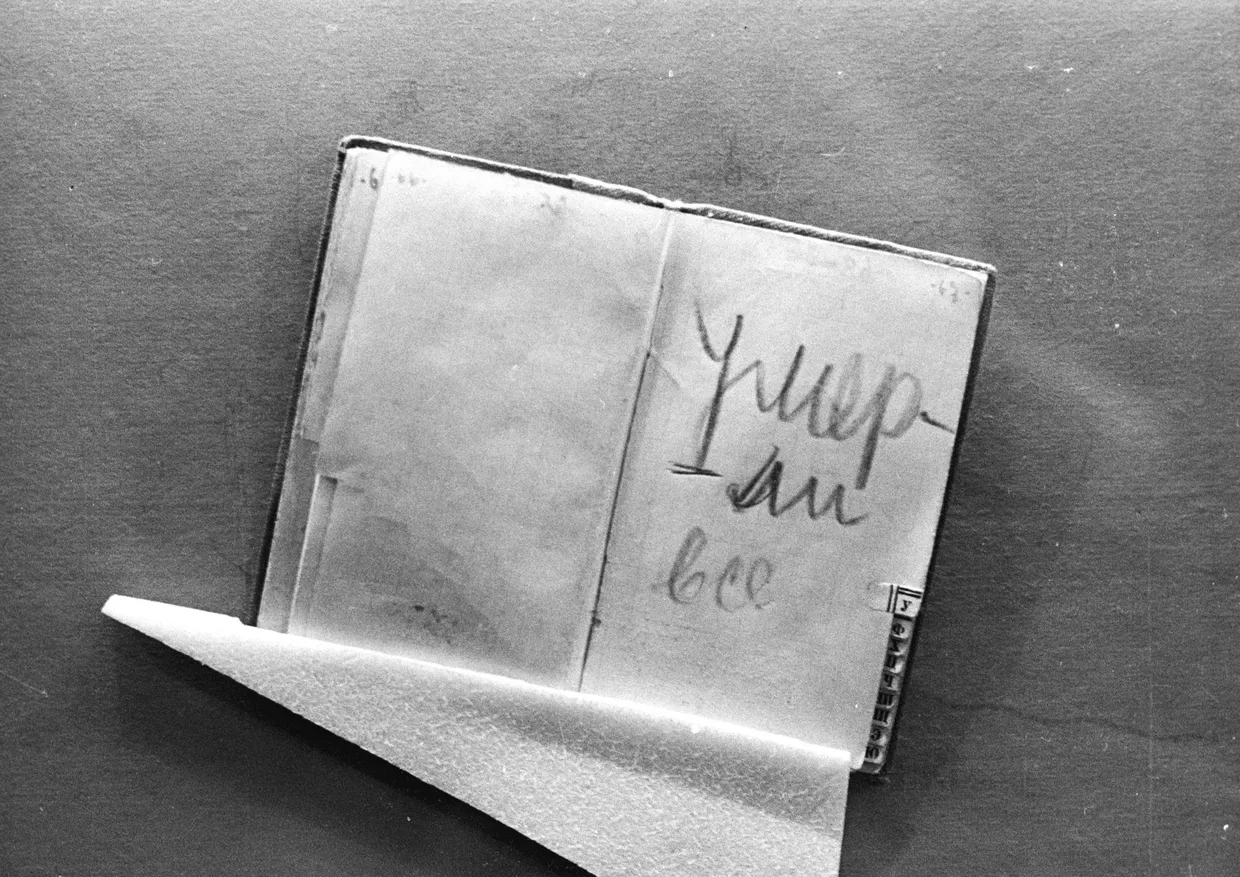 Умер-
ли
все
У
Ф
Х
Ц
Ч
Ш
Щ
Э
Ю